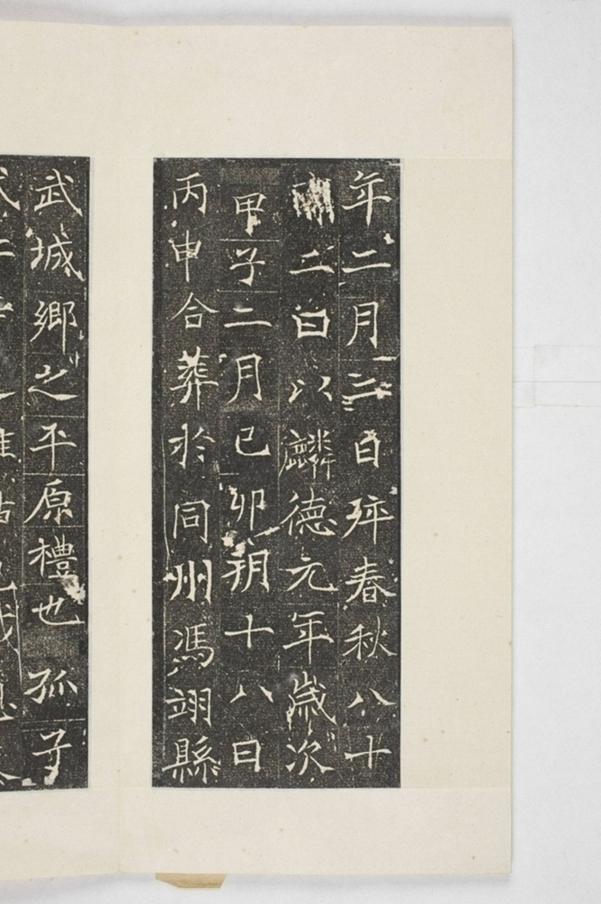 年二月三日春秋八十
二曰以麟德元年歲次
甲子二月己卯朔十八日
丙申合葬於同州馮翊縣
武城鄉之平原禮也孤子